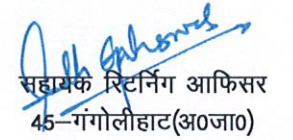 सहायक रिटर्निग आफिसर
45–गंगोलीहाट(अ0जा0)